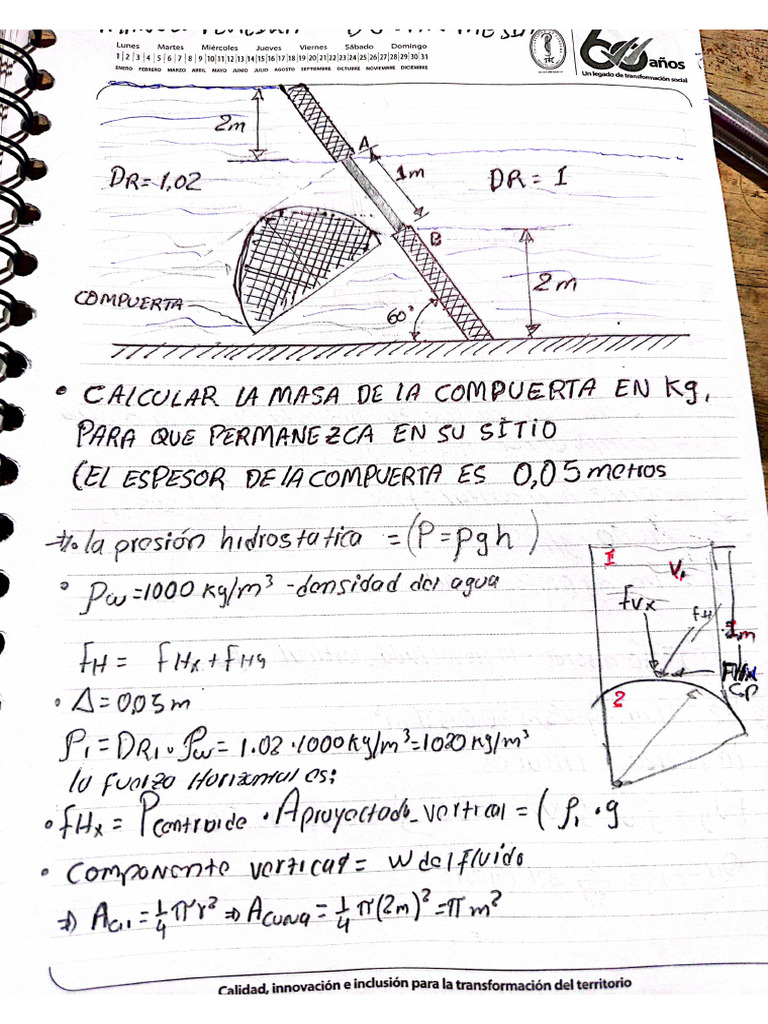 Lunes Martes Miércoles Jueves Viernes Sábado Domingo
1 2 3 4 5 6 7 8 9 10 11 12 13 14 15 16 17 18 19 20 21 22 23 24 25 26 27 28 29 30 31
ENERO FEBRERO MARZO ABRIL MAYO JUNIO JULIO AGOSTO SEPTIEMBRE OCTUBRE NOVIEMBRE DICIEMBRE
60 años
Un legado de transformación social
2m
A
1m
DR=1,02
DR = 1
B
2m
COMPUERTA
60°
• CALCULAR LA MASA DE LA COMPUERTA EN Kg,
PARA QUE PERMANEZCA EN SU SITIO
(EL ESPESOR DE LA COMPUERTA ES 0,05 metros
la presión hidrostatica = (P = ρgh)
• ρw = 1000 kg/m³ - densidad del agua
fH = fHx + fHy
• Δ = 0,05 m
ρ1 = DR1 · ρw = 1.02 · 1000 kg/m³ = 1020 kg/m³
la fuerza Horizontal es:
• fHx = Pcentroide · Aproyectado_vertical = (ρ1 · g
• Componente vertical = W del fluido
⇒ = 1/4 πr² ⇒ Acuña = 1/4 π(2m)² = π m²
1
V1
fvx
fH
CP
2
Calidad, innovación e inclusión para la transformación del territorio